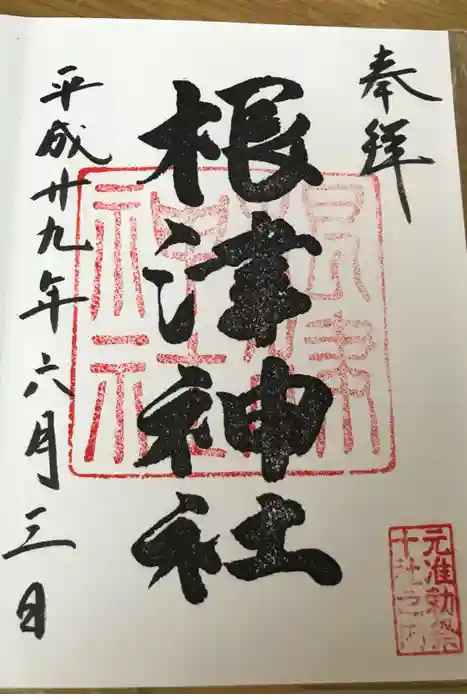 奉拝
根津神社
根津神社
平成廿九年六月三日
元准勅祭
十社之内